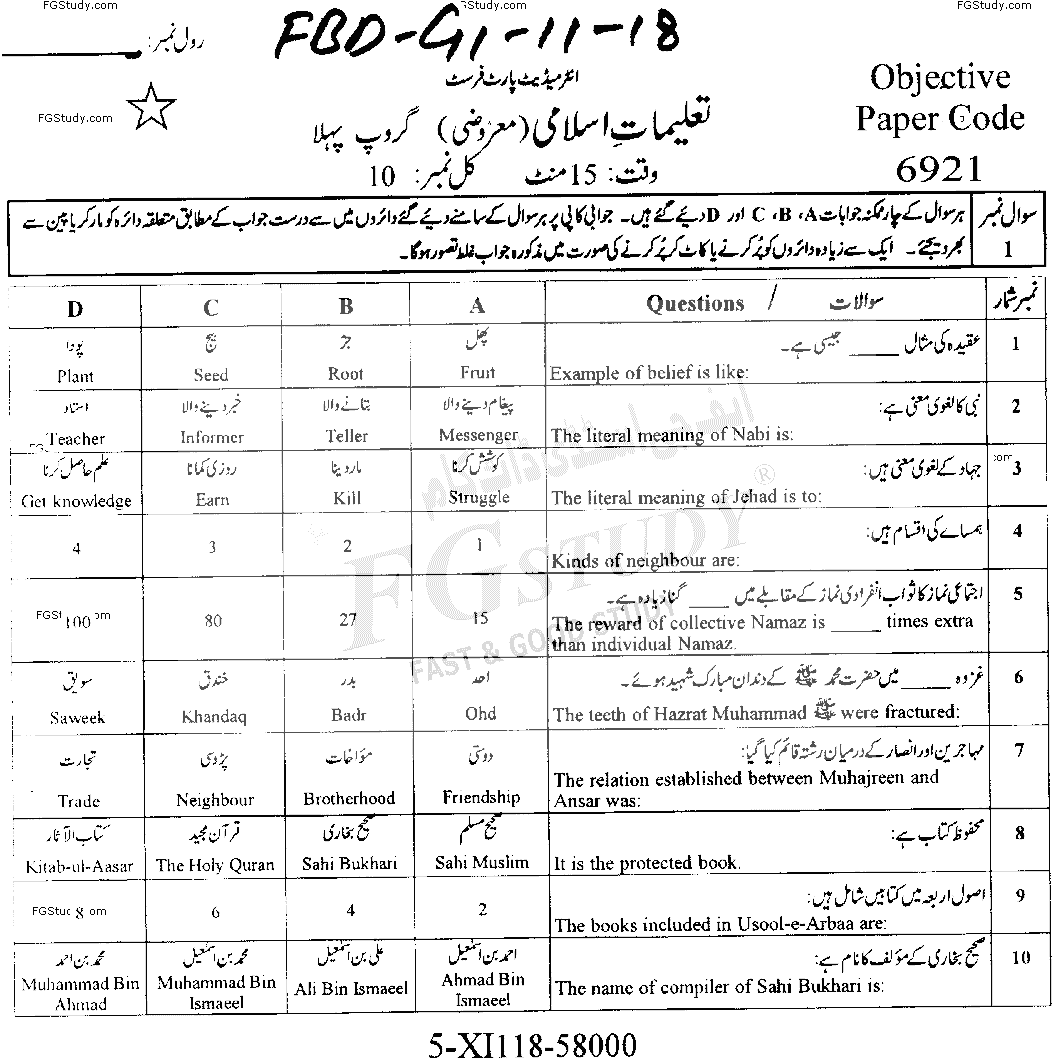 FGStudy.com FGStudy.com FGStudy.com
FBD-G1-11-18
رول نمبر:
انٹرمیڈیٹ پارٹ فرسٹ
FGStudy.com
تعلیماتِ اسلامی (معروضی) گروپ پہلا
وقت: 15 منٹ کل نمبر: 10
Objective
Paper Code
6921
سوال نمبر 1
ہر سوال کے چار ممکنہ جوابات A، B، C اور D دیئے گئے ہیں۔ جوابی کاپی پر ہر سوال کے سامنے دیئے گئے دائروں میں سے درست جواب کے مطابق متعلقہ دائرہ کو مارکر یا پین سے
بھر دیجئے۔ ایک سے زیادہ دائروں کو پُر کرنے یا کاٹ کر پُر کرنے کی صورت میں مذکورہ جواب غلط تصور ہوگا۔
نمبر شمار سوالات / Questions A B C D
1 عقیدہ کی مثال _____ جیسی ہے۔ پھل جڑ بیج پودا
Example of belief is like: Fruit Root Seed Plant
2 نبی کا لغوی معنی ہے: پیغام دینے والا بتانے والا خبر دینے والا استاد
The literal meaning of Nabi is: Messenger Teller Informer Teacher
3 جہاد کے لغوی معنی ہیں: کوشش کرنا مار دینا روزی کمانا علم حاصل کرنا
The literal meaning of Jehad is to: Struggle Kill Earn Get knowledge
4 ہمسائے کی اقسام ہیں:
Kinds of neighbour are: 1 2 3 4
5 اجتماعی نماز کا ثواب انفرادی نماز کے مقابلے میں ____ گنا زیادہ ہے۔
The reward of collective Namaz is _____ times extra
than individual Namaz. 15 27 80 100
6 غزوہ _____ میں حضرت محمد ﷺ کے دندان مبارک شہید ہوئے۔ احد بدر خندق سویق
The teeth of Hazrat Muhammad ﷺ were fractured: Ohd Badr Khandaq Saweek
7 مہاجرین اور انصار کے درمیان رشتہ قائم کیا گیا: دوستی مؤاخات پڑوسی تجارت
The relation established between Muhajreen and
Ansar was: Friendship Brotherhood Neighbour Trade
8 محفوظ کتاب ہے: صحیح مسلم صحیح بخاری قرآن مجید کتاب الآثار
It is the protected book. Sahi Muslim Sahi Bukhari The Holy Quran Kitab-ul-Aasar
9 اصول اربعہ میں کتابیں شامل ہیں:
The books included in Usool-e-Arbaa are: 2 4 6 8
10 صحیح بخاری کے مؤلف کا نام ہے: احمد بن اسمٰعیل علی بن اسمٰعیل محمد بن اسمٰعیل محمد بن احمد
The name of compiler of Sahi Bukhari is: Ahmad Bin Ismaeel Ali Bin Ismaeel Muhammad Bin Ismaeel Muhammad Bin Ahmad
ایف جی اسٹڈی ڈاٹ کام
FG STUDY ®
FAST & GOOD STUDY
5-XI118-58000